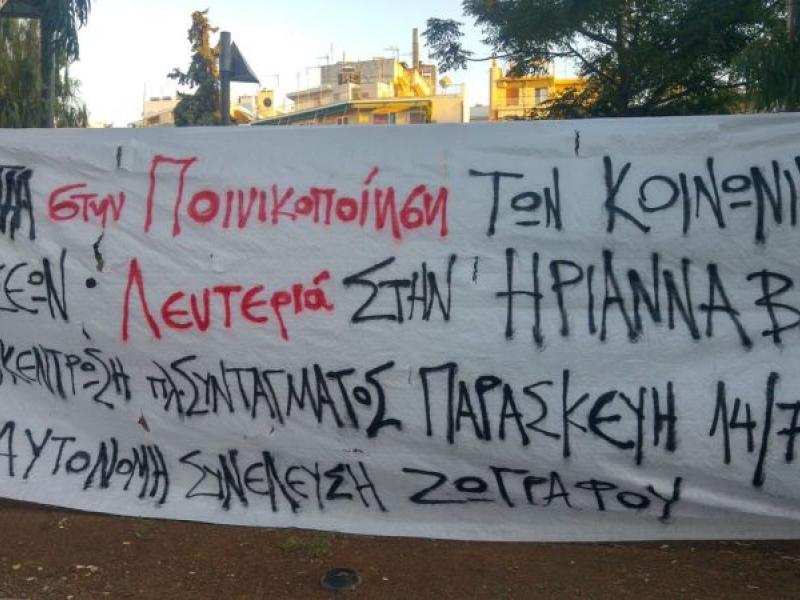 στην Ποινικοποίηση ΤΩΝ ΚΟΙΝΩΝΙ
ΣΕΩΝ · Λευτεριά ΣΤΗΝ ΗΡΙΑΝΝΑ Β
ΚΕΝΤΡΩΣΗ ΠΛ.ΣΥΝΤΑΓΜΑΤΟΣ ΠΑΡΑΣΚΕΥΗ 14/7
ΑΥΤΟΝΟΜΗ ΣΥΝΕΛΕΥΣΗ ΖΩΓΡΑΦΟΥ